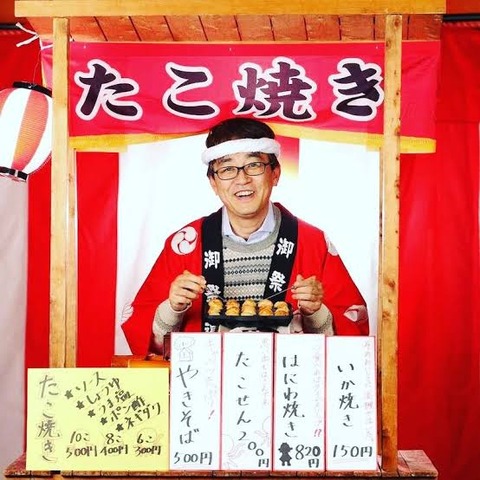 たこ焼き
御祭
御祭
たこ焼き
★ソース
★しょうゆ
★うま塩
★ポン酢
★ネギダク
10こ 500円
8こ 400円
6こ 300円
やきそば
500円
たこせん200円
はにわ焼き
820円
いか焼き
150円